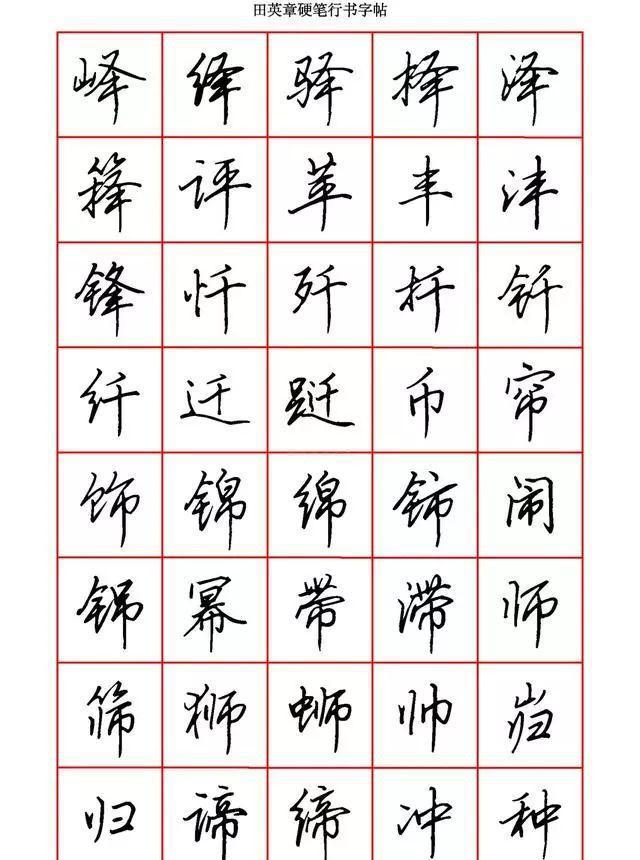 田英章硬笔行书字帖
峄 绎 驿 择 泽
箨 评 革 丰 沣
锋 忏 歼 扦 钎
纤 迁 跹 币 帘
饰 锦 绵 铈 闹
幂 带 滞 师
筛 狮 蛳 帅 岿
归 谛 缔 冲 种